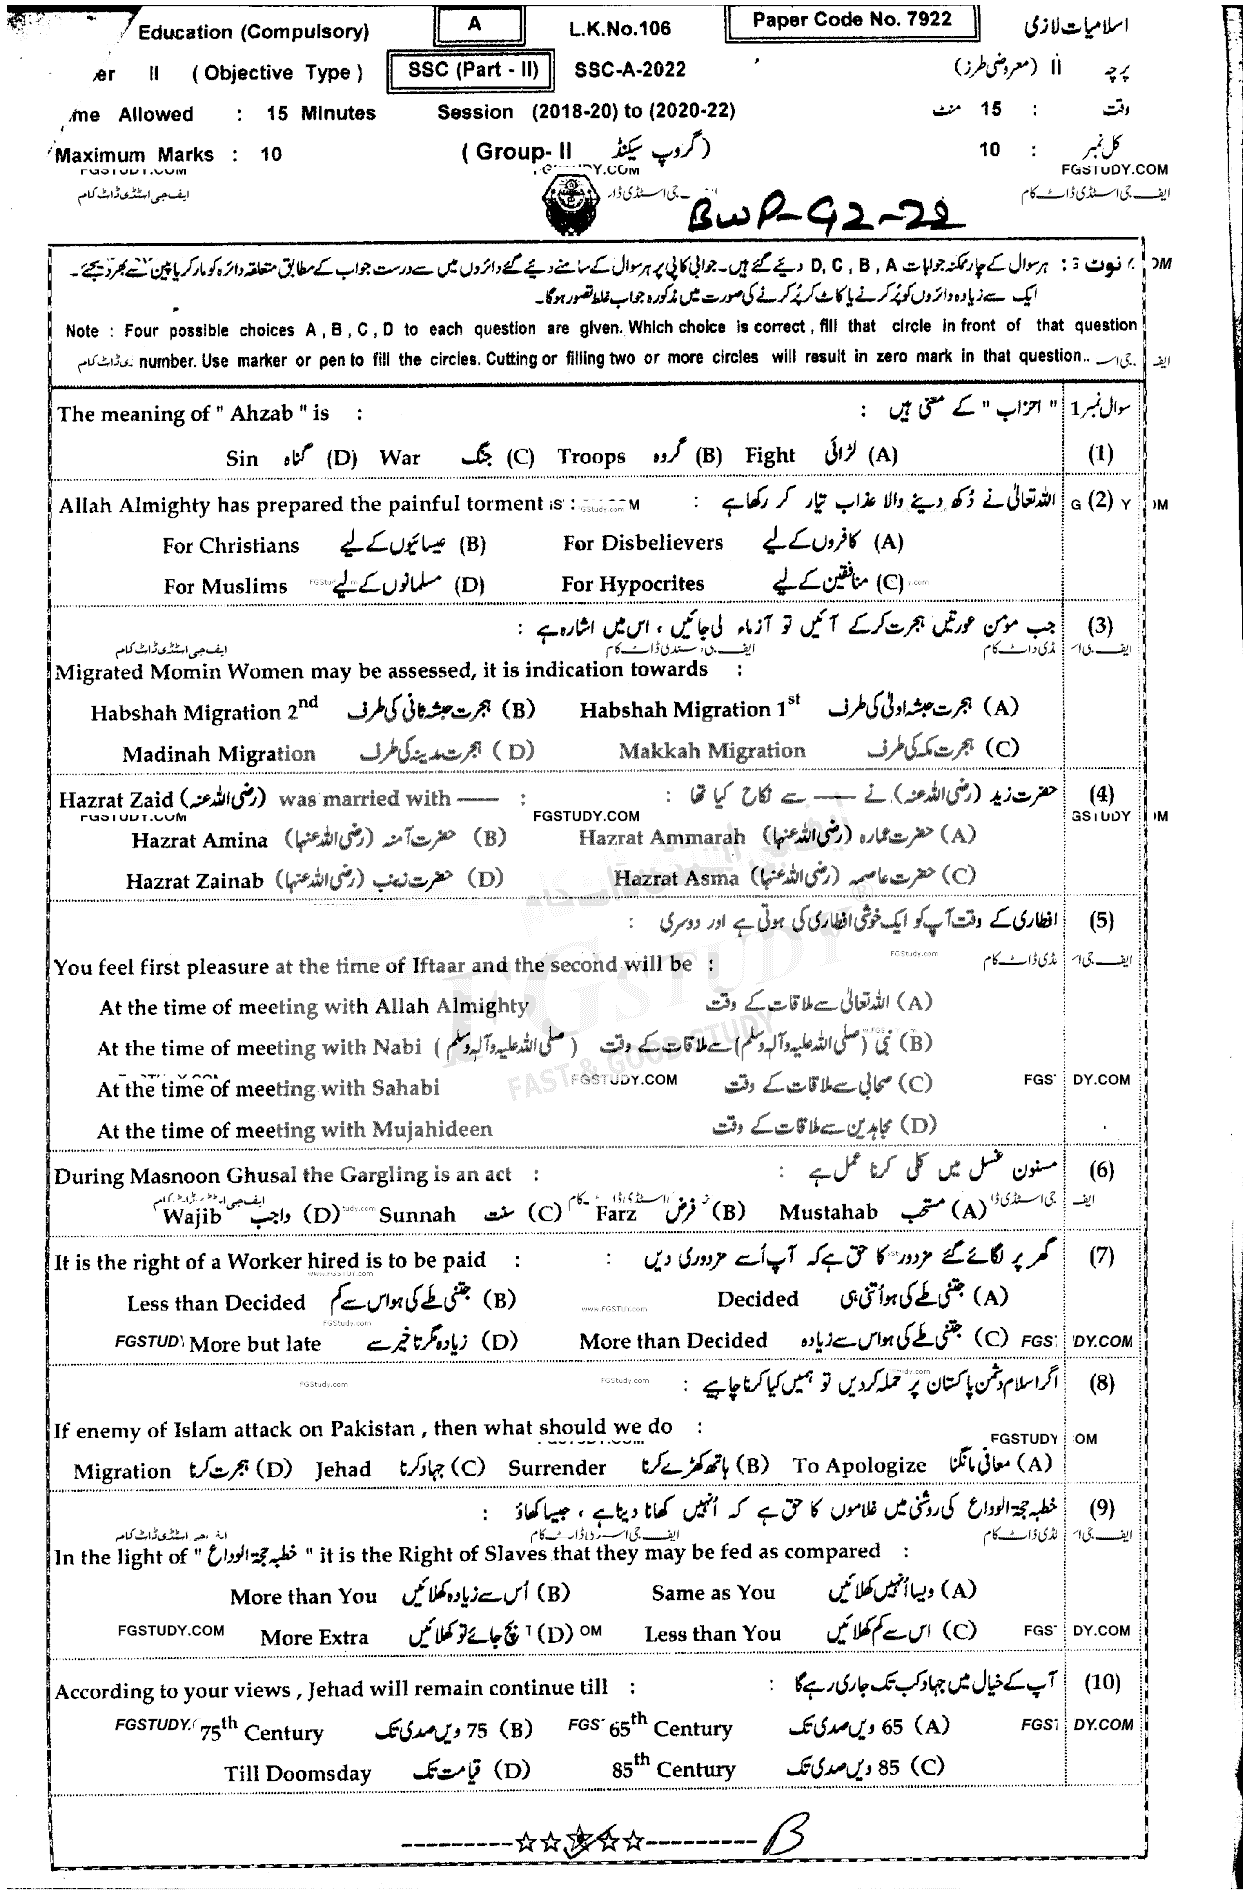 Education (Compulsory) A L.K.No.106 Paper Code No. 7922 اسلامیات لازمی
II (Objective Type) SSC (Part - II) SSC-A-2022 پرچہ II (معروضی طرز)
Allowed : 15 Minutes Session (2018-20) to (2020-22) وقت : 15 منٹ
Maximum Marks : 10 (Group- II گروپ سیکنڈ) کل نمبر : 10
FGSTUDY.COM
ایف جی اسٹڈی ڈاٹ کام
BWP-G2-22
نوٹ : ہر سوال کے چار ممکنہ جوابات D, C, B, A دیئے گئے ہیں۔ جوابی کاپی پر ہر سوال کے سامنے دیئے گئے دائروں میں سے درست جواب کے مطابق متعلقہ دائرہ کو مارکر یا پین سے بھر دیجئے۔
ایک سے زیادہ دائروں کو پُر کرنے یا کاٹ کر پُر کرنے کی صورت میں مذکورہ جواب غلط تصور ہوگا۔
Note : Four possible choices A, B, C, D to each question are given. Which choice is correct, fill that circle in front of that question
number. Use marker or pen to fill the circles. Cutting or filling two or more circles will result in zero mark in that question..
The meaning of " Ahzab " is : " احزاب " کے معنی ہیں : سوال نمبر 1
Sin گناہ (D) War جنگ (C) Troops گروہ (B) Fight لڑائی (A) (1)
Allah Almighty has prepared the painful torment is : اللہ تعالیٰ نے دُکھ دینے والا عذاب تیار کر رکھا ہے : (2)
For Christians عیسائیوں کے لیے (B) For Disbelievers کافروں کے لیے (A)
For Muslims مسلمانوں کے لیے (D) For Hypocrites منافقین کے لیے (C)
جب مؤمن عورتیں ہجرت کر کے آئیں تو آزما لی جائیں ، اس میں اشارہ ہے : (3)
Migrated Momin Women may be assessed, it is indication towards :
Habshah Migration 2nd ہجرت حبشہ ثانی کی طرف (B) Habshah Migration 1st ہجرت حبشہ اولیٰ کی طرف (A)
Madinah Migration ہجرت مدینہ کی طرف (D) Makkah Migration ہجرت مکہ کی طرف (C)
Hazrat Zaid (رضی اللہ عنہ) was married with —— : حضرت زید (رضی اللہ عنہ) نے —— سے نکاح کیا تھا : (4)
FGSTUDY.COM
Hazrat Amina حضرت آمنہ (رضی اللہ عنہا) (B) Hazrat Ammarah حضرت عمارہ (رضی اللہ عنہا) (A)
Hazrat Zainab حضرت زینب (رضی اللہ عنہا) (D) Hazrat Asma حضرت عاصمہ (رضی اللہ عنہا) (C)
افطاری کے وقت آپ کو ایک خوشی افطاری کی ہوتی ہے اور دوسری : (5)
You feel first pleasure at the time of Iftaar and the second will be :
At the time of meeting with Allah Almighty اللہ تعالیٰ سے ملاقات کے وقت (A)
At the time of meeting with Nabi (صلی اللہ علیہ وآلہ وسلم) نبی (صلی اللہ علیہ وآلہ وسلم) سے ملاقات کے وقت (B)
At the time of meeting with Sahabi صحابی سے ملاقات کے وقت (C)
At the time of meeting with Mujahideen مجاہدین سے ملاقات کے وقت (D)
FGSTUDY
FAST & GOOD STUDY
During Masnoon Ghusal the Gargling is an act : مسنون غسل میں کلی کرنا عمل ہے : (6)
Wajib واجب (D) Sunnah سنت (C) Farz فرض (B) Mustahab مستحب (A)
It is the right of a Worker hired is to be paid : گھر پر لگائے گئے مزدور کا حق ہے کہ آپ اُسے مزدوری دیں : (7)
Less than Decided جتنی طے کی ہو اس سے کم (B) Decided جتنی طے کی ہو اُتنی ہی (A)
More but late زیادہ مگر تاخیر سے (D) More than Decided جتنی طے کی ہو اس سے زیادہ (C)
اگر اسلام دشمن پاکستان پر حملہ کر دیں تو ہمیں کیا کرنا چاہیے : (8)
If enemy of Islam attack on Pakistan, then what should we do :
Migration ہجرت کرنا (D) Jehad جہاد کرنا (C) Surrender ہاتھ کھڑے کرنا (B) To Apologize معافی مانگنا (A)
خطبہ حجۃ الوداع کی روشنی میں غلاموں کا حق ہے کہ اُنہیں کھانا دینا ہے ، جیسا کھاؤ : (9)
In the light of " خطبہ حجۃ الوداع " it is the Right of Slaves that they may be fed as compared :
More than You اُس سے زیادہ کھلائیں (B) Same as You ویسا اُنہیں کھلائیں (A)
More Extra بچ جائے تو کھلائیں (D) Less than You اس سے کم کھلائیں (C)
آپ کے خیال میں جہاد کب تک جاری رہے گا : (10)
According to your views, Jehad will remain continue till :
75th Century 75 ویں صدی تک (B) 65th Century 65 ویں صدی تک (A)
Till Doomsday قیامت تک (D) 85th Century 85 ویں صدی تک (C)
B